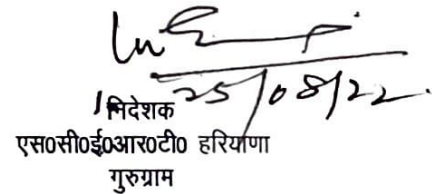 25/08/22
निदेशक
एस0सी0ई0आर0टी0 हरियाणा
गुरुग्राम